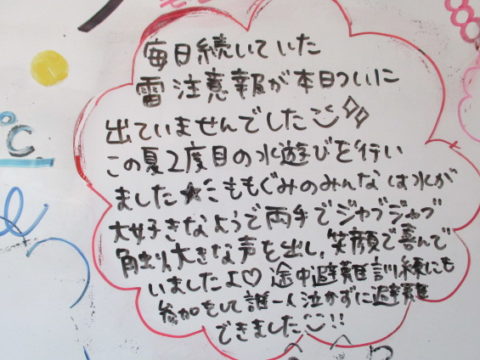 毎日続いていた
雷注意報が本日ついに
出ていませんでした
この夏2度目の水遊びを行い
ました★こももぐみのみんなは水が
大好きなようで両手でジャブジャブ
触り大きな声を出し、笑顔で喜んで
いましたよ♡途中避難訓練にも
参加をして誰一人泣かずに避難
できました!!
℃